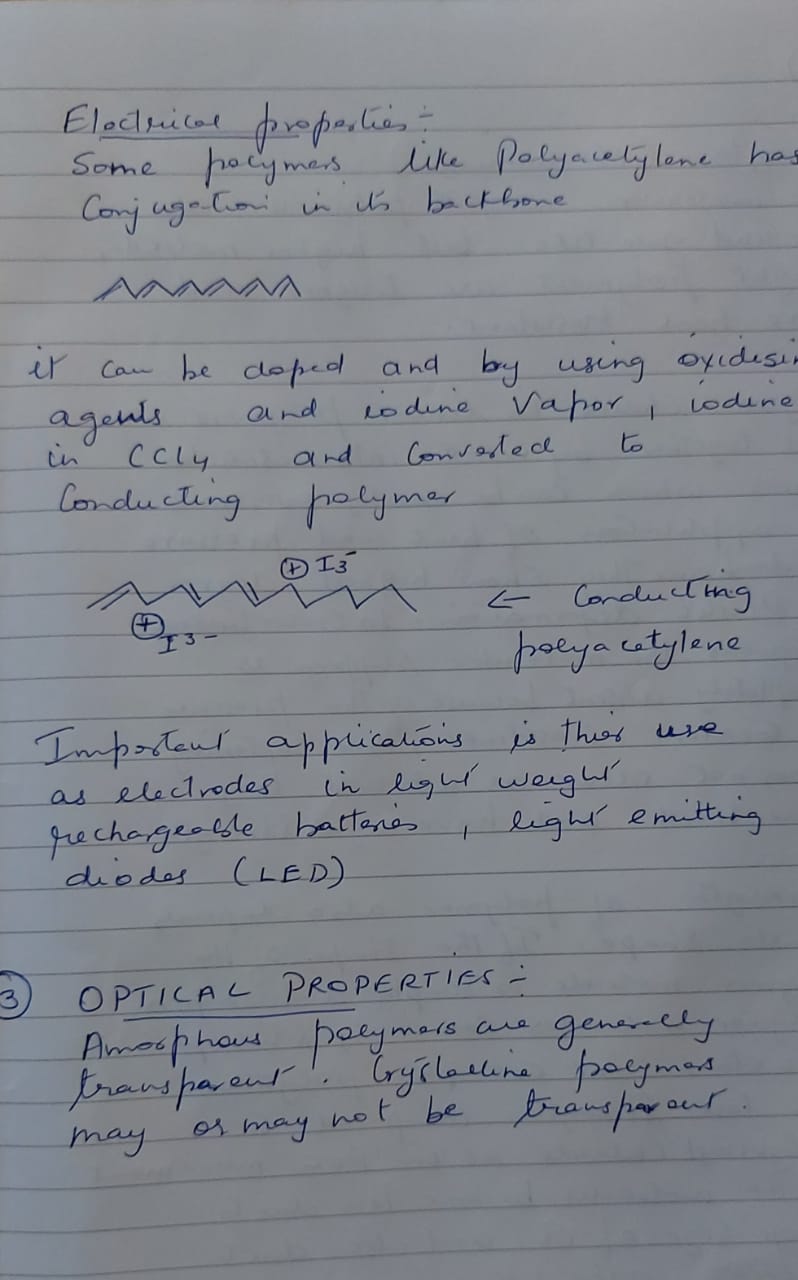 Electrical properties:-
Some polymers like Polyacetylene has
Conjugation in its backbone
it can be doped and by using oxidesin
agents and iodine vapor, iodine
in CCl4 and Converted to
Conducting polymer
⊕ I3-
← Conducting
⊕ I3-
polyacetylene
Important applications is their use
as electrodes in light weight
rechargeable batteries, light emitting
diodes (LED)
③ OPTICAL PROPERTIES:-
Amorphous polymers are generally
transparent. Crystalline polymers
may or may not be transparent.